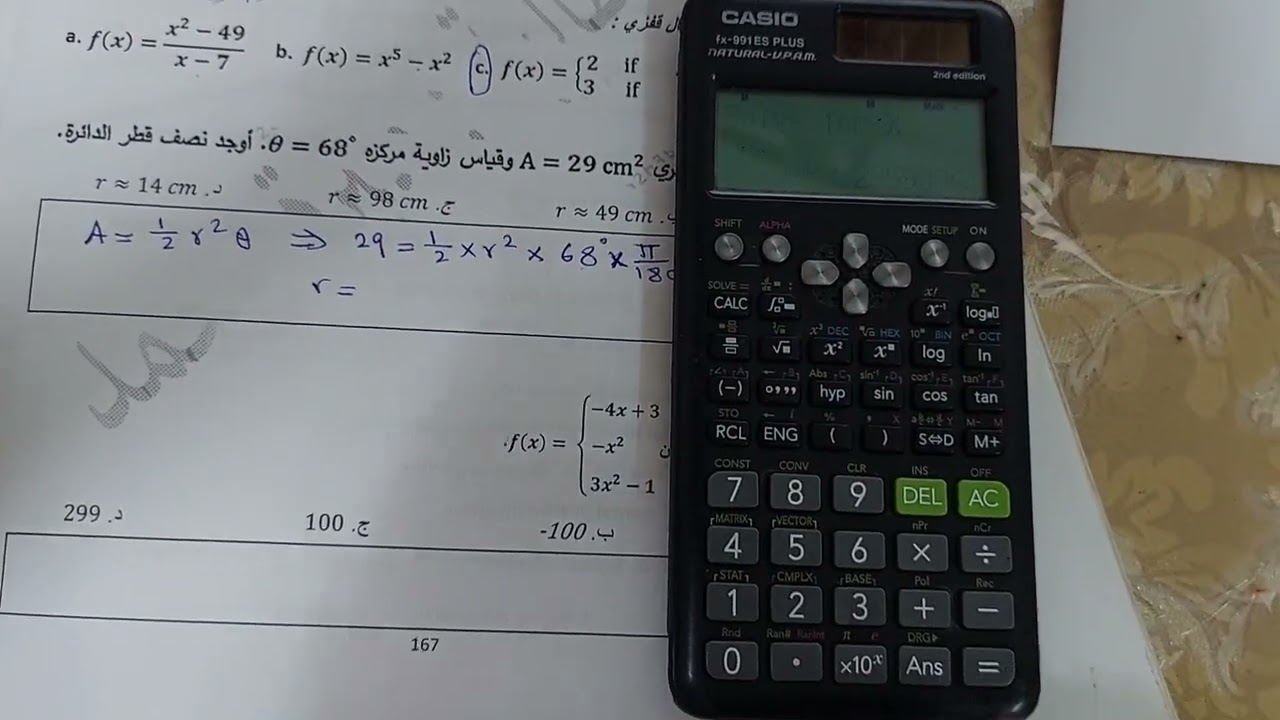 ال قفزي :
a. f(x) = \frac{x² − 49}{x − 7} b. f(x) = x⁵ − x² c. f(x) = { 2 if
3 if
ري A = 29 cm² وقياس زاوية مركزه θ = 68°. أوجد نصف قطر الدائرة.
ب. r ≈ 49 cm ج. r ≈ 98 cm د. r ≈ 14 cm
A = \frac{1}{2} r² θ ⇒ 29 = \frac{1}{2} × r² × 68° × \frac{π}{180}
r =
f(x) = { −4x + 3
−x²
3x² − 1
ب. -100 ج. 100 د. 299
167
CASIO
fx-991ES PLUS
NATURAL-V.P.A.M.
2nd edition
SHIFT ALPHA MODE SETUP ON
SOLVE =
CALC x! x⁻¹ log
x³ DEC HEX BIN OCT
x² log ln
Abs sin⁻¹ cos⁻¹ tan⁻¹
(−) hyp sin cos tan
STO
RCL ENG ( ) S⇔D M+
CONST CONV CLR INS OFF
7 8 9 DEL AC
MATRIX VECTOR nPr nCr
4 5 6 × ÷
STAT CMPLX BASE Pol Rec
1 2 3 + −
Rnd Ran# RanInt π e DRG▸
0 . ×10ˣ Ans =